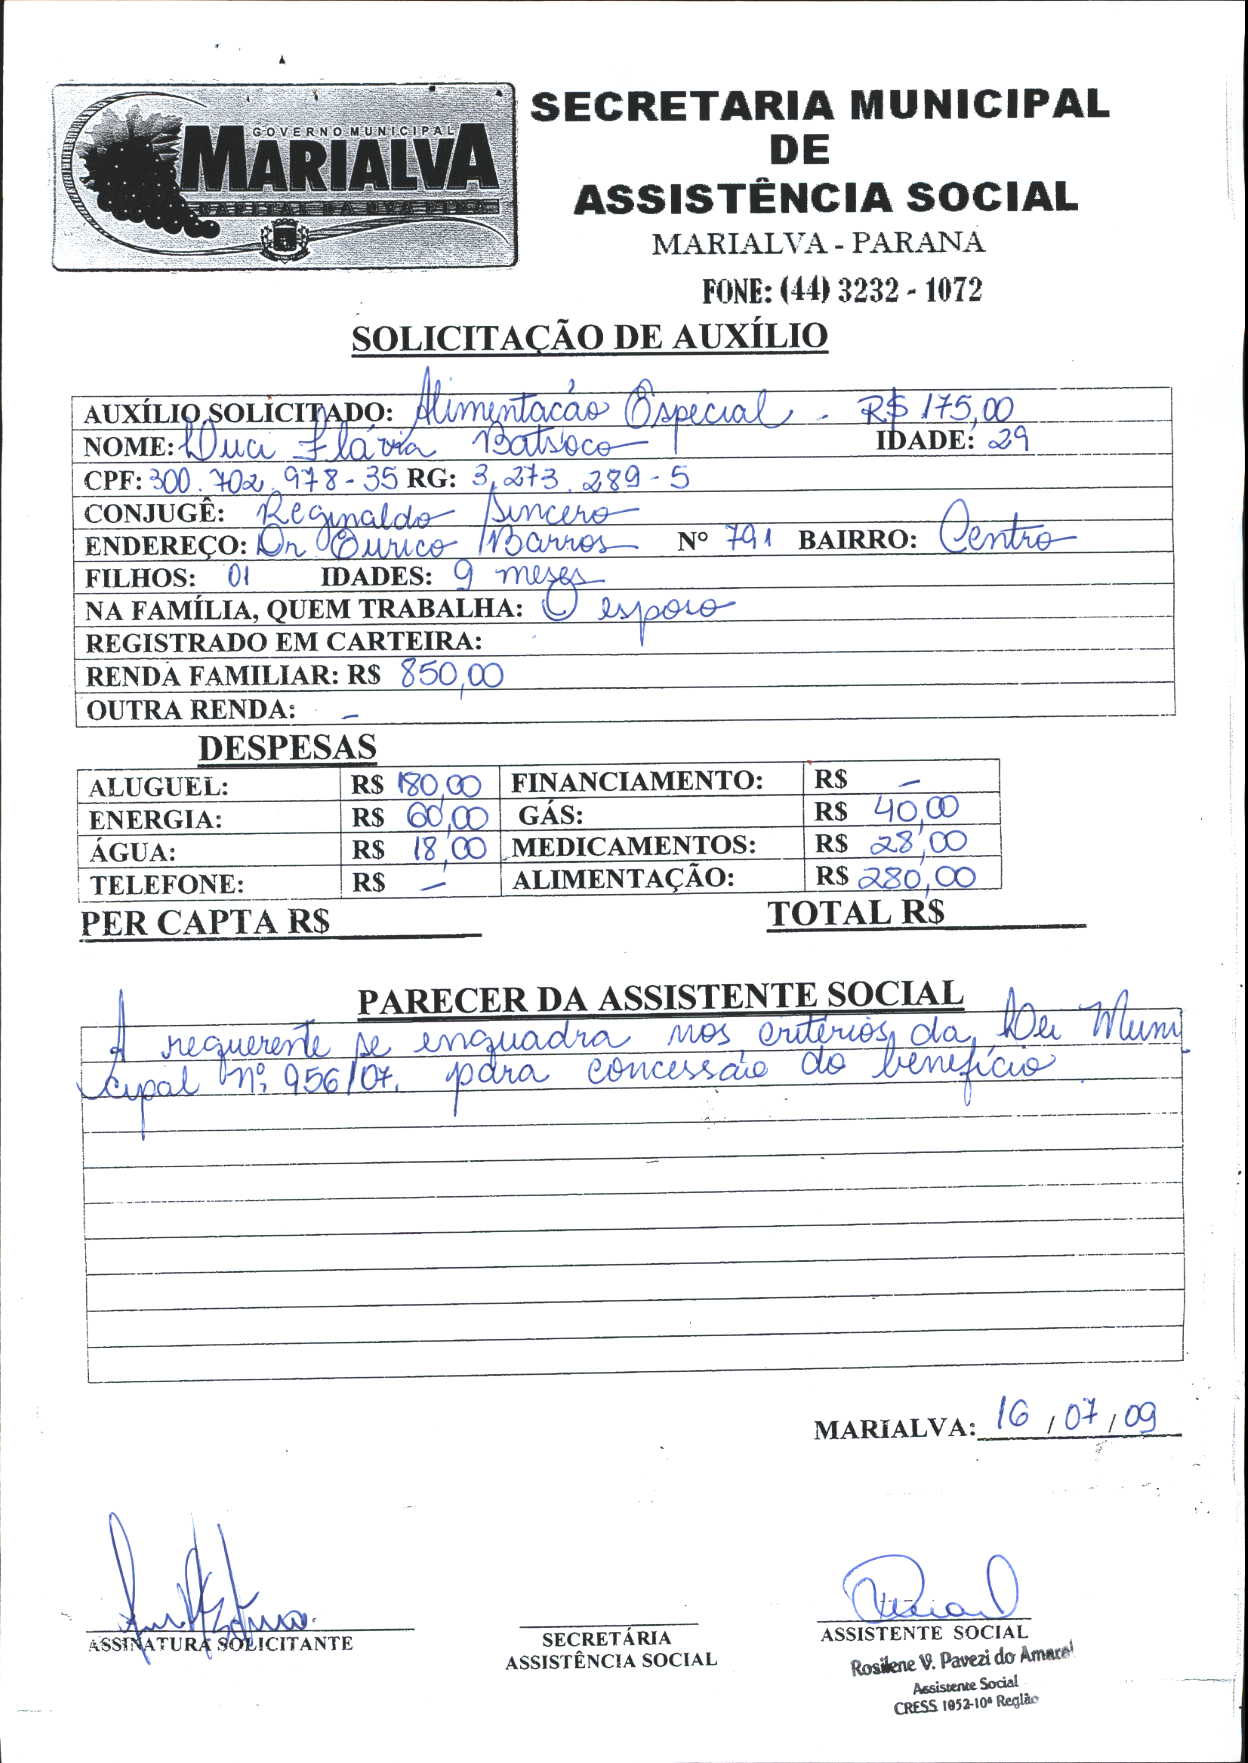 GOVERNO MUNICIPAL
MARIALVA
SECRETARIA MUNICIPAL
DE
ASSISTÊNCIA SOCIAL
MARIALVA - PARANÁ
FONE: (44) 3232 - 1072
SOLICITAÇÃO DE AUXÍLIO
AUXÍLIO SOLICITADO: Alimentação Especial - R$ 175,00
NOME: Luci Flávia Batsoco IDADE: 29
CPF: 300.702.978-35 RG: 3.273.289-5
CONJUGÊ: Reginaldo Sincero
ENDEREÇO: Dr Eurico Barros Nº 791 BAIRRO: Centro
FILHOS: 01 IDADES: 9 meses
NA FAMÍLIA, QUEM TRABALHA: O esposo
REGISTRADO EM CARTEIRA:
RENDA FAMILIAR: R$ 850,00
OUTRA RENDA: -
DESPESAS
ALUGUEL: R$ 180,00 FINANCIAMENTO: R$ -
ENERGIA: R$ 60,00 GÁS: R$ 40,00
ÁGUA: R$ 18,00 MEDICAMENTOS: R$ 28,00
TELEFONE: R$ - ALIMENTAÇÃO: R$ 280,00
PER CAPTA R$ TOTAL R$
PARECER DA ASSISTENTE SOCIAL
A requerente se enquadra nos critérios da Lei Muni
cipal nº 956/07. para concessão do benefício
MARIALVA: 16 / 07 / 09
ASSINATURA SOLICITANTE
SECRETÁRIA
ASSISTÊNCIA SOCIAL
ASSISTENTE SOCIAL
Rosilene V. Pavezi do Amaral
Assistente Social
CRESS 1852-10ª Região